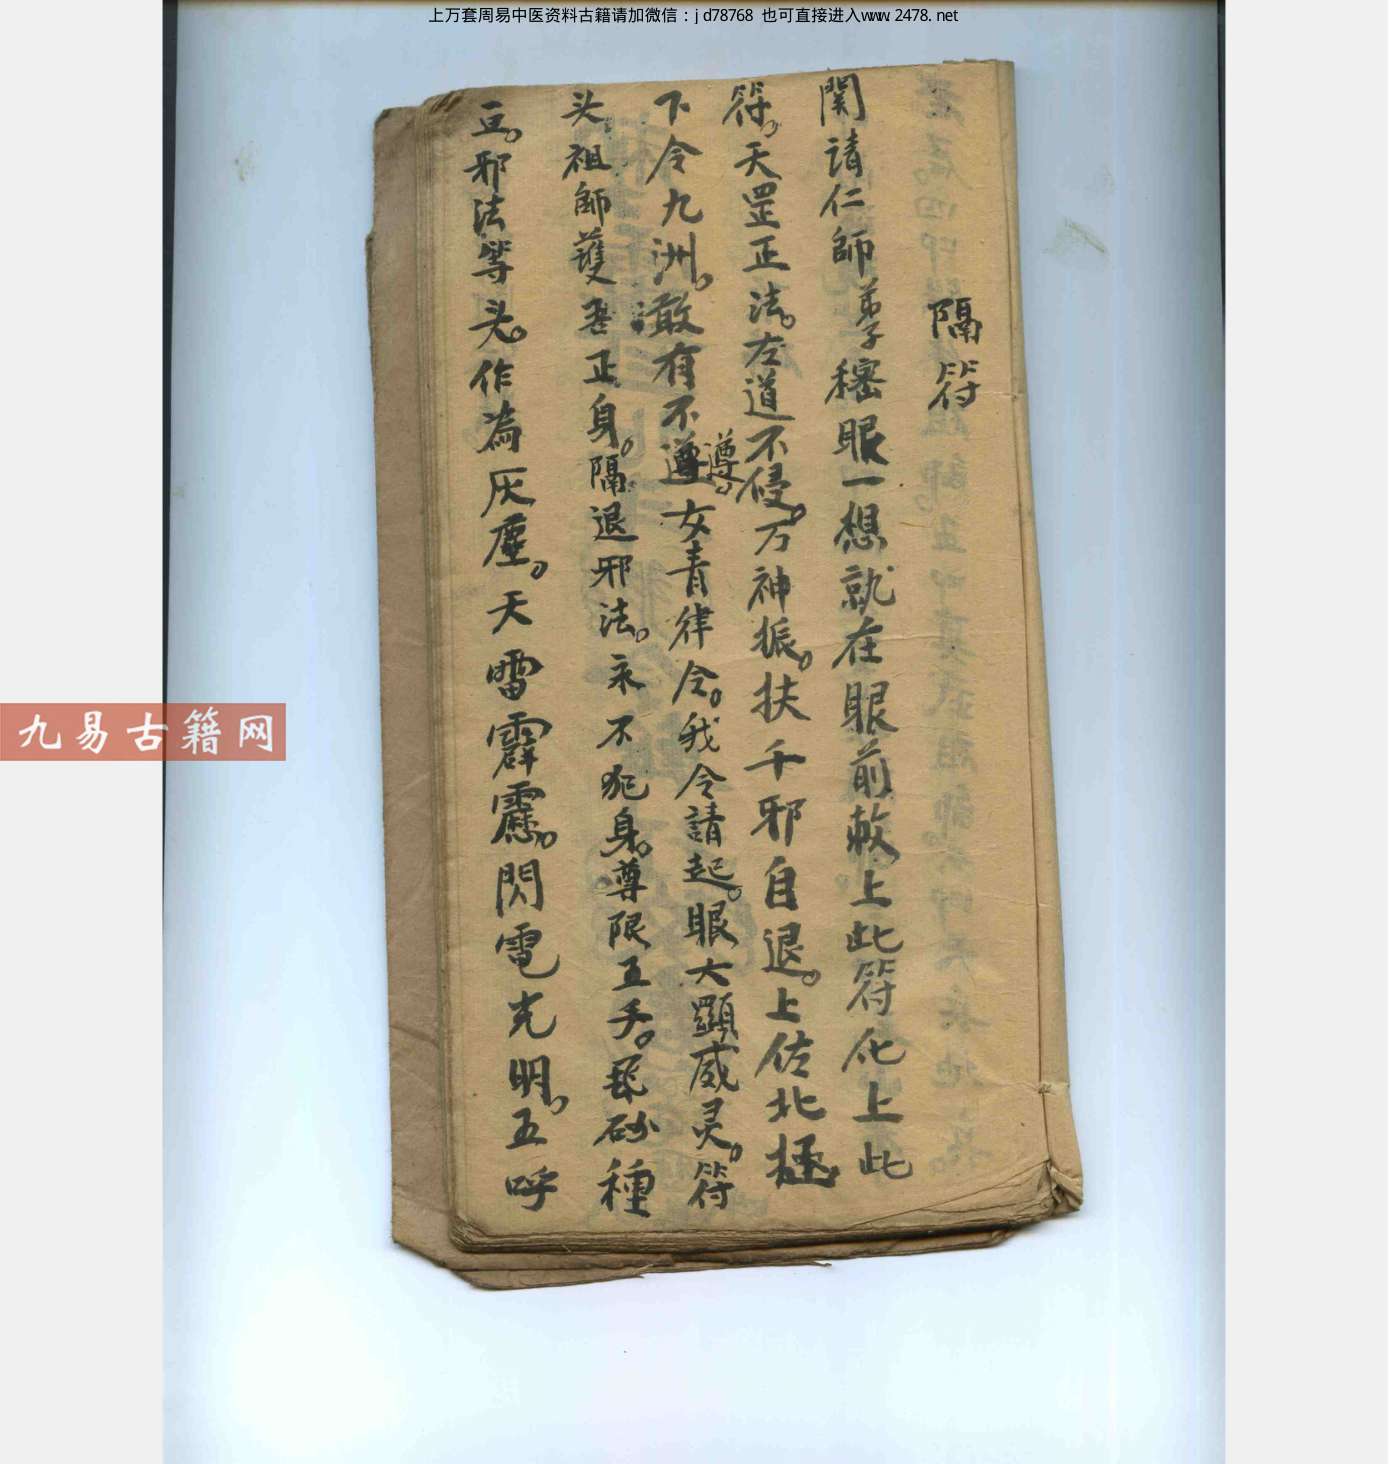 上万套周易中医资料古籍请加微信：jd78768 也可直接进入www.2478.net
隔符
関請仁師弟子穩眼一想就在眼前敕上此符化上此
符。天罡正法。左道不侵。万神振。扶千邪自退。上佐北極
下令九洲。敢有不遵遵。女青律令。我令請起。眼大顯威灵。符
头。祖師護吾正身。隔退邪法。永不犯身。尊限五手。砂種
豆。邪法等头。作為灰塵。天雷霹靂。閃電光明。五呼
九易古籍网